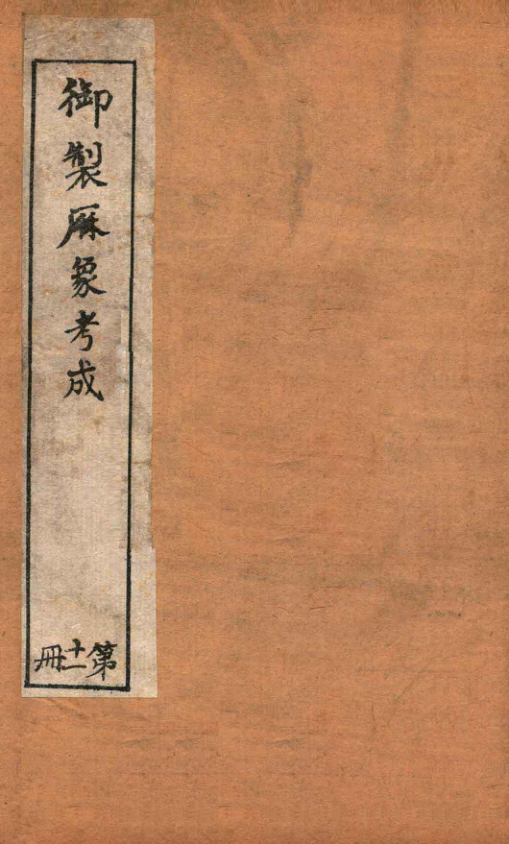 御製厤象考成
第十一冊